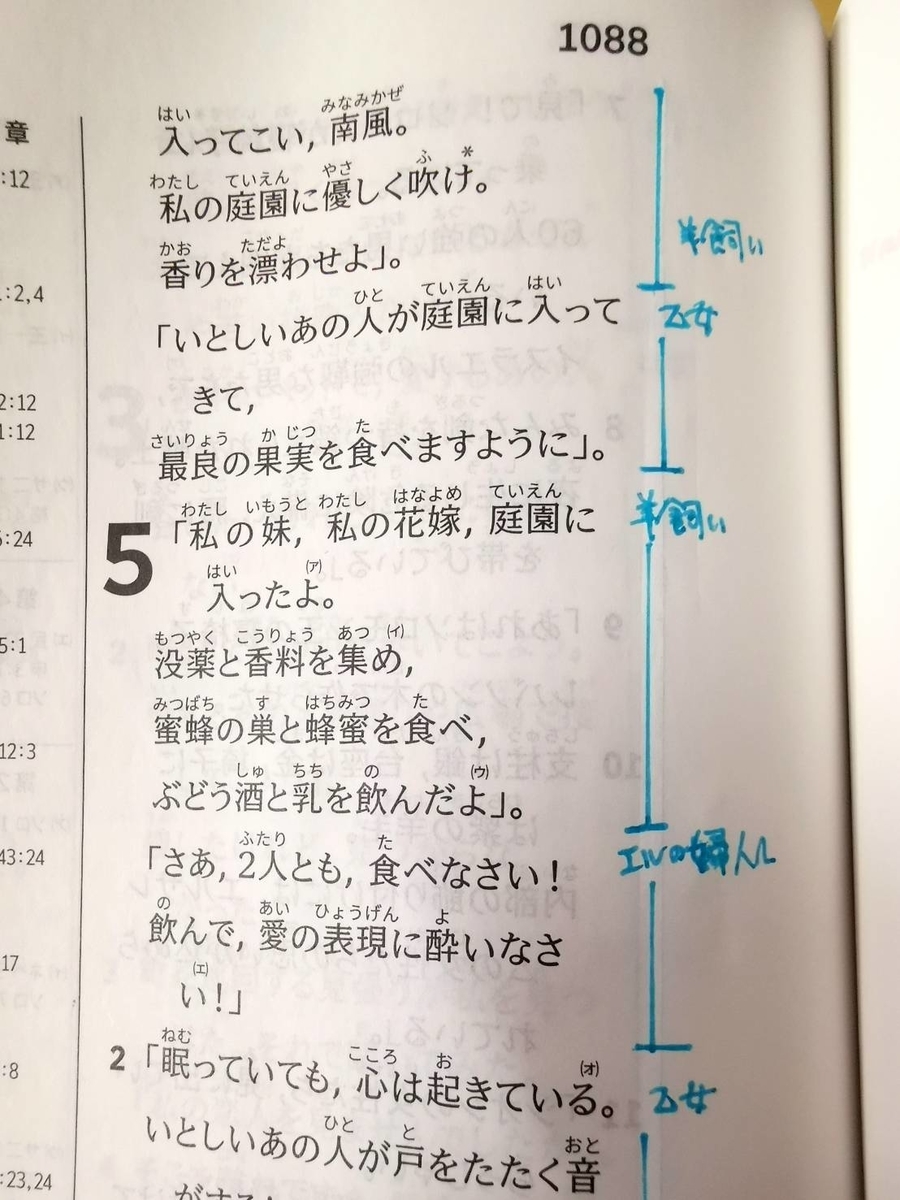 1088
章
:12
入ってこい, 南風。
私の庭園に優しく吹け。*
香りを漂わせよ」。
羊飼い
:2,4
「いとしいあの人が庭園に入って
乙女
きて,
2:12
1:12
最良の果実を食べますように」。
5 「私の妹, 私の花嫁, 庭園に
羊飼い
5:24
入ったよ。(ア)
5:1
没薬と香料を集め,(イ)
蜜蜂の巣と蜂蜜を食べ,
12:3
ぶどう酒と乳を飲んだよ」。(ウ)
「さあ, 2人とも, 食べなさい!
43:24
エルの婦人ら
飲んで, 愛の表現に酔いなさ
17
い!」(エ)
2 「眠っていても, 心は起きている。(オ)
:8
乙女
いとしいあの人が戸をたたく音
:23,24
がする!